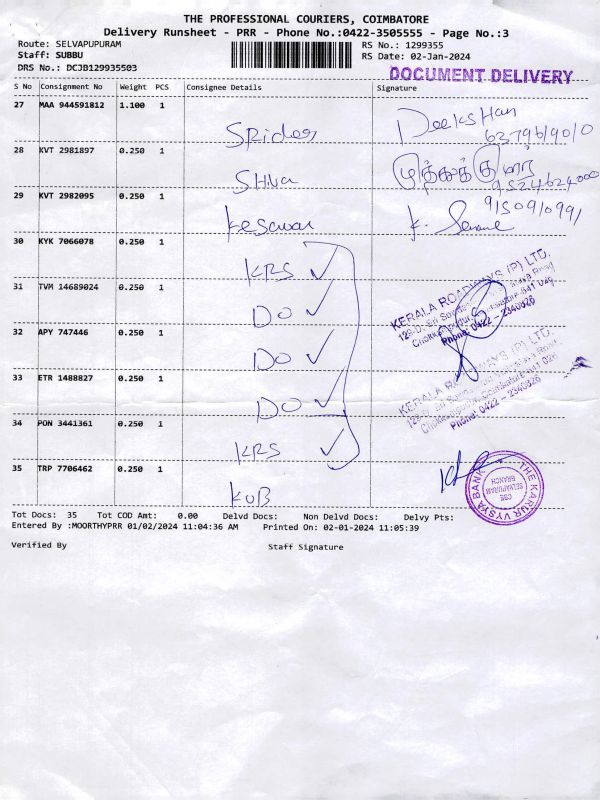 THE PROFESSIONAL COURIERS, COIMBATORE
Delivery Runsheet - PRR - Phone No.:0422-3505555 - Page No.:3
Route: SELVAPUPURAM
RS No.: 1299355
Staff: SUBBU
RS Date: 02-Jan-2024
DRS No.: DCJB129935503
DOCUMENT DELIVERY
S No Consignment No Weight PCS Consignee Details Signature
27 MAA 944591812 1.100 1
Spider Deekshan
6379619010
28 KVT 2981897 0.250 1
Shiva முத்துக்குமார்
9524624000
29 KVT 2982095 0.250 1
Kesavan K.
9150910991
30 KYK 7066078 0.250 1
KRS ✓
31 TVM 14689024 0.250 1
DO ✓
KERALA ROADWAYS (P) LTD.
Phone: 0422 - 2340626
32 APY 747446 0.250 1
DO ✓
33 ETR 1488827 0.250 1
DO ✓
KERALA ROADWAYS (P) LTD.
Phone: 0422 - 2340626
34 PON 3441361 0.250 1
KRS ✓
35 TRP 7706462 0.250 1
KVB
THE KARUR VYSYA BANK
CBE
SELVAPURAM
BRANCH
Tot Docs: 35 Tot COD Amt: 0.00 Delvd Docs: Non Delvd Docs: Delvy Pts:
Entered By :MOORTHYPRR 01/02/2024 11:04:36 AM Printed On: 02-01-2024 11:05:39
Verified By Staff Signature